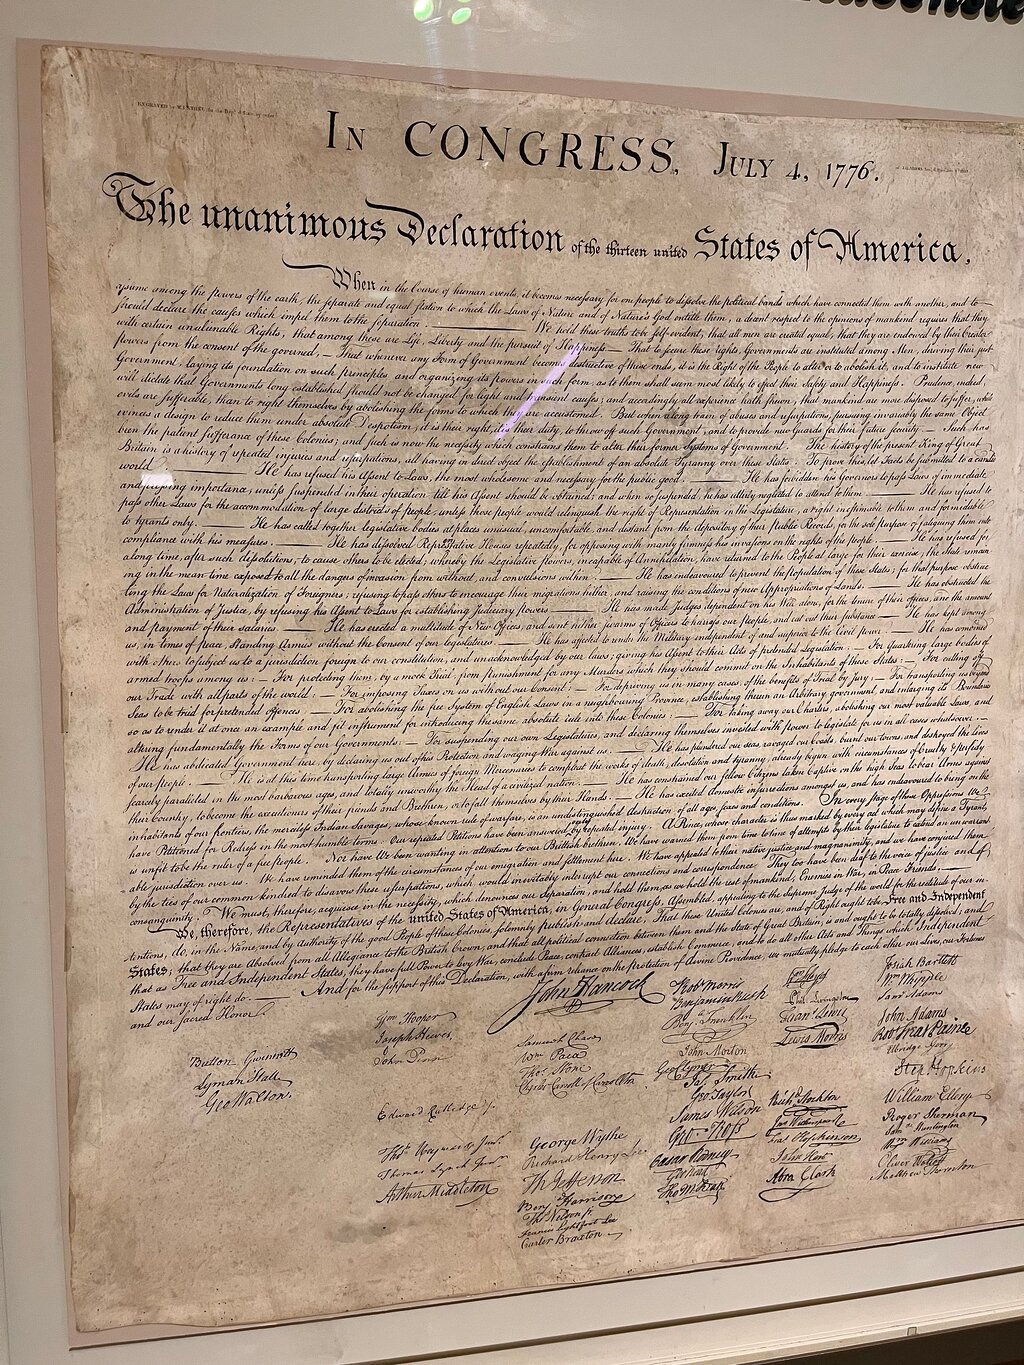 ENGRAVED by W.I. STONE, for the Dept. of State, by order
IN CONGRESS, JULY 4, 1776.
The unanimous Declaration of the thirteen united States of America,
When in the Course of human events, it becomes necessary for one people to dissolve the political bands which have connected them with another, and to
assume among the powers of the earth, the separate and equal station to which the Laws of Nature and of Nature's God entitle them, a decent respect to the opinions of mankind requires that they
should declare the causes which impel them to the separation. ——— We hold these truths to be self-evident, that all men are created equal, that they are endowed by their Creator
with certain unalienable Rights, that among these are Life, Liberty and the pursuit of Happiness.— That to secure these rights, Governments are instituted among Men, deriving their just
powers from the consent of the governed, — That whenever any Form of Government becomes destructive of these ends, it is the Right of the People to alter or to abolish it, and to institute new
Government, laying its foundation on such principles, and organizing its powers in such form, as to them shall seem most likely to effect their Safety and Happiness. Prudence, indeed,
will dictate that Governments long established should not be changed for light and transient causes; and accordingly all experience hath shewn, that mankind are more disposed to suffer, while
evils are sufferable, than to right themselves by abolishing the forms to which they are accustomed. But when a long train of abuses and usurpations, pursuing invariably the same Object
evinces a design to reduce them under absolute Despotism, it is their right, it is their duty, to throw off such Government, and to provide new Guards for their future security.— Such has
been the patient sufferance of these Colonies; and such is now the necessity which constrains them to alter their former Systems of Government. The history of the present King of Great
Britain is a history of repeated injuries and usurpations, all having in direct object the establishment of an absolute Tyranny over these States. To prove this, let Facts be submitted to a candid
world. ——— He has refused his Assent to Laws, the most wholesome and necessary for the public good. ——— He has forbidden his Governors to pass Laws of immediate
and pressing importance, unless suspended in their operation till his Assent should be obtained; and when so suspended, he has utterly neglected to attend to them. ——— He has refused to
pass other Laws for the accommodation of large districts of people, unless those people would relinquish the right of Representation in the Legislature, a right inestimable to them and formidable
to tyrants only. ——— He has called together legislative bodies at places unusual, uncomfortable, and distant from the depository of their Public Records, for the sole purpose of fatiguing them into
compliance with his measures. ——— He has dissolved Representative Houses repeatedly, for opposing with manly firmness his invasions on the rights of the people. ——— He has refused for a
long time, after such dissolutions, to cause others to be elected; whereby the Legislative powers, incapable of Annihilation, have returned to the People at large for their exercise; the State remain
ing in the mean time exposed to all the dangers of invasion from without, and convulsions within. ——— He has endeavoured to prevent the population of these States; for that purpose obstruc
ting the Laws for Naturalization of Foreigners; refusing to pass others to encourage their migrations hither, and raising the conditions of new Appropriations of Lands. ——— He has obstructed the
Administration of Justice, by refusing his Assent to Laws for establishing Judiciary powers. ——— He has made Judges dependent on his Will alone, for the tenure of their offices, and the amount
and payment of their salaries. ——— He has erected a multitude of New Offices, and sent hither swarms of Officers to harrass our people, and eat out their substance. ——— He has kept among
us, in times of peace, Standing Armies without the Consent of our legislatures. ——— He has affected to render the Military independent of and superior to the Civil power. ——— He has combined
with others to subject us to a jurisdiction foreign to our constitution, and unacknowledged by our laws; giving his Assent to their Acts of pretended Legislation: — For Quartering large bodies of
armed troops among us: — For protecting them, by a mock Trial, from punishment for any Murders which they should commit on the Inhabitants of these States: — For cutting off
our Trade with all parts of the world: — For imposing Taxes on us without our Consent: — For depriving us in many cases, of the benefits of Trial by Jury: — For transporting us beyond
Seas to be tried for pretended offences — For abolishing the free System of English Laws in a neighbouring Province, establishing therein an Arbitrary government, and enlarging its Boundaries
so as to render it at once an example and fit instrument for introducing the same absolute rule into these Colonies: — For taking away our Charters, abolishing our most valuable Laws, and
altering fundamentally the Forms of our Governments: — For suspending our own Legislatures, and declaring themselves invested with power to legislate for us in all cases whatsoever. —
He has abdicated Government here, by declaring us out of his Protection and waging War against us. ——— He has plundered our seas, ravaged our Coasts, burnt our towns, and destroyed the lives
of our people. ——— He is at this time transporting large Armies of foreign Mercenaries to compleat the works of death, desolation and tyranny, already begun with circumstances of Cruelty & perfidy
scarcely paralleled in the most barbarous ages, and totally unworthy the Head of a civilized nation. ——— He has constrained our fellow Citizens taken Captive on the high Seas to bear Arms against
their Country, to become the executioners of their friends and Brethren, or to fall themselves by their Hands. ——— He has excited domestic insurrections amongst us, and has endeavoured to bring on the
inhabitants of our frontiers, the merciless Indian Savages, whose known rule of warfare, is an undistinguished destruction of all ages, sexes and conditions. In every stage of these Oppressions We
have Petitioned for Redress in the most humble terms: Our repeated Petitions have been answered only by repeated injury. A Prince, whose character is thus marked by every act which may define a Tyrant,
is unfit to be the ruler of a free people. Nor have We been wanting in attentions to our Brittish brethren. We have warned them from time to time of attempts by their legislature to extend an unwarrant
able jurisdiction over us. We have reminded them of the circumstances of our emigration and settlement here. We have appealed to their native justice and magnanimity, and we have conjured them
by the ties of our common kindred to disavow these usurpations, which would inevitably interrupt our connections and correspondence. They too have been deaf to the voice of justice and of
consanguinity. We must, therefore, acquiesce in the necessity, which denounces our Separation, and hold them, as we hold the rest of mankind, Enemies in War, in Peace Friends. ———
We, therefore, the Representatives of the united States of America, in General Congress, Assembled, appealing to the Supreme Judge of the world for the rectitude of our in
tentions, do, in the Name, and by Authority of the good People of these Colonies, solemnly publish and declare, That these United Colonies are, and of Right ought to be Free and Independent
States; that they are Absolved from all Allegiance to the British Crown, and that all political connection between them and the State of Great Britain, is and ought to be totally dissolved; and
that as Free and Independent States, they have full Power to levy War, conclude Peace, contract Alliances, establish Commerce, and to do all other Acts and Things which Independent
States may of right do. ——— And for the support of this Declaration, with a firm reliance on the protection of divine Providence, we mutually pledge to each other our Lives, our Fortunes
and our sacred Honor.
Button Gwinnett
Lyman Hall
Geo Walton.
Wm Hooper
Joseph Hewes,
John Penn
Edward Rutledge /.
Thos Heyward Junr.
Thomas Lynch Junr.
Arthur Middleton
John Hancock
Samuel Chase
Wm Paca
Thos Stone
Charles Carroll of Carrollton
George Wythe
Richard Henry Lee
Th Jefferson
Benj Harrison
Thos Nelson jr.
Francis Lightfoot Lee
Carter Braxton
Robt Morris
Benjamin Rush
Benj. Franklin
John Morton
Geo Clymer
Jas. Smith
Geo Taylor
James Wilson
Geo. Ross
Caesar Rodney
Geo Read
Tho M:Kean
Wm Floyd
Phil. Livingston
Frans. Lewis
Lewis Morris
Richd. Stockton
Jno Witherspoon
Fras. Hopkinson
John Hart
Abra Clark
Josiah Bartlett
Wm Whipple
Saml Adams
John Adams
Robt Treat Paine
Elbridge Gerry
Step Hopkins
William Ellery
Roger Sherman
Saml Huntington
Wm Williams
Oliver Wolcott
Matthew Thornton